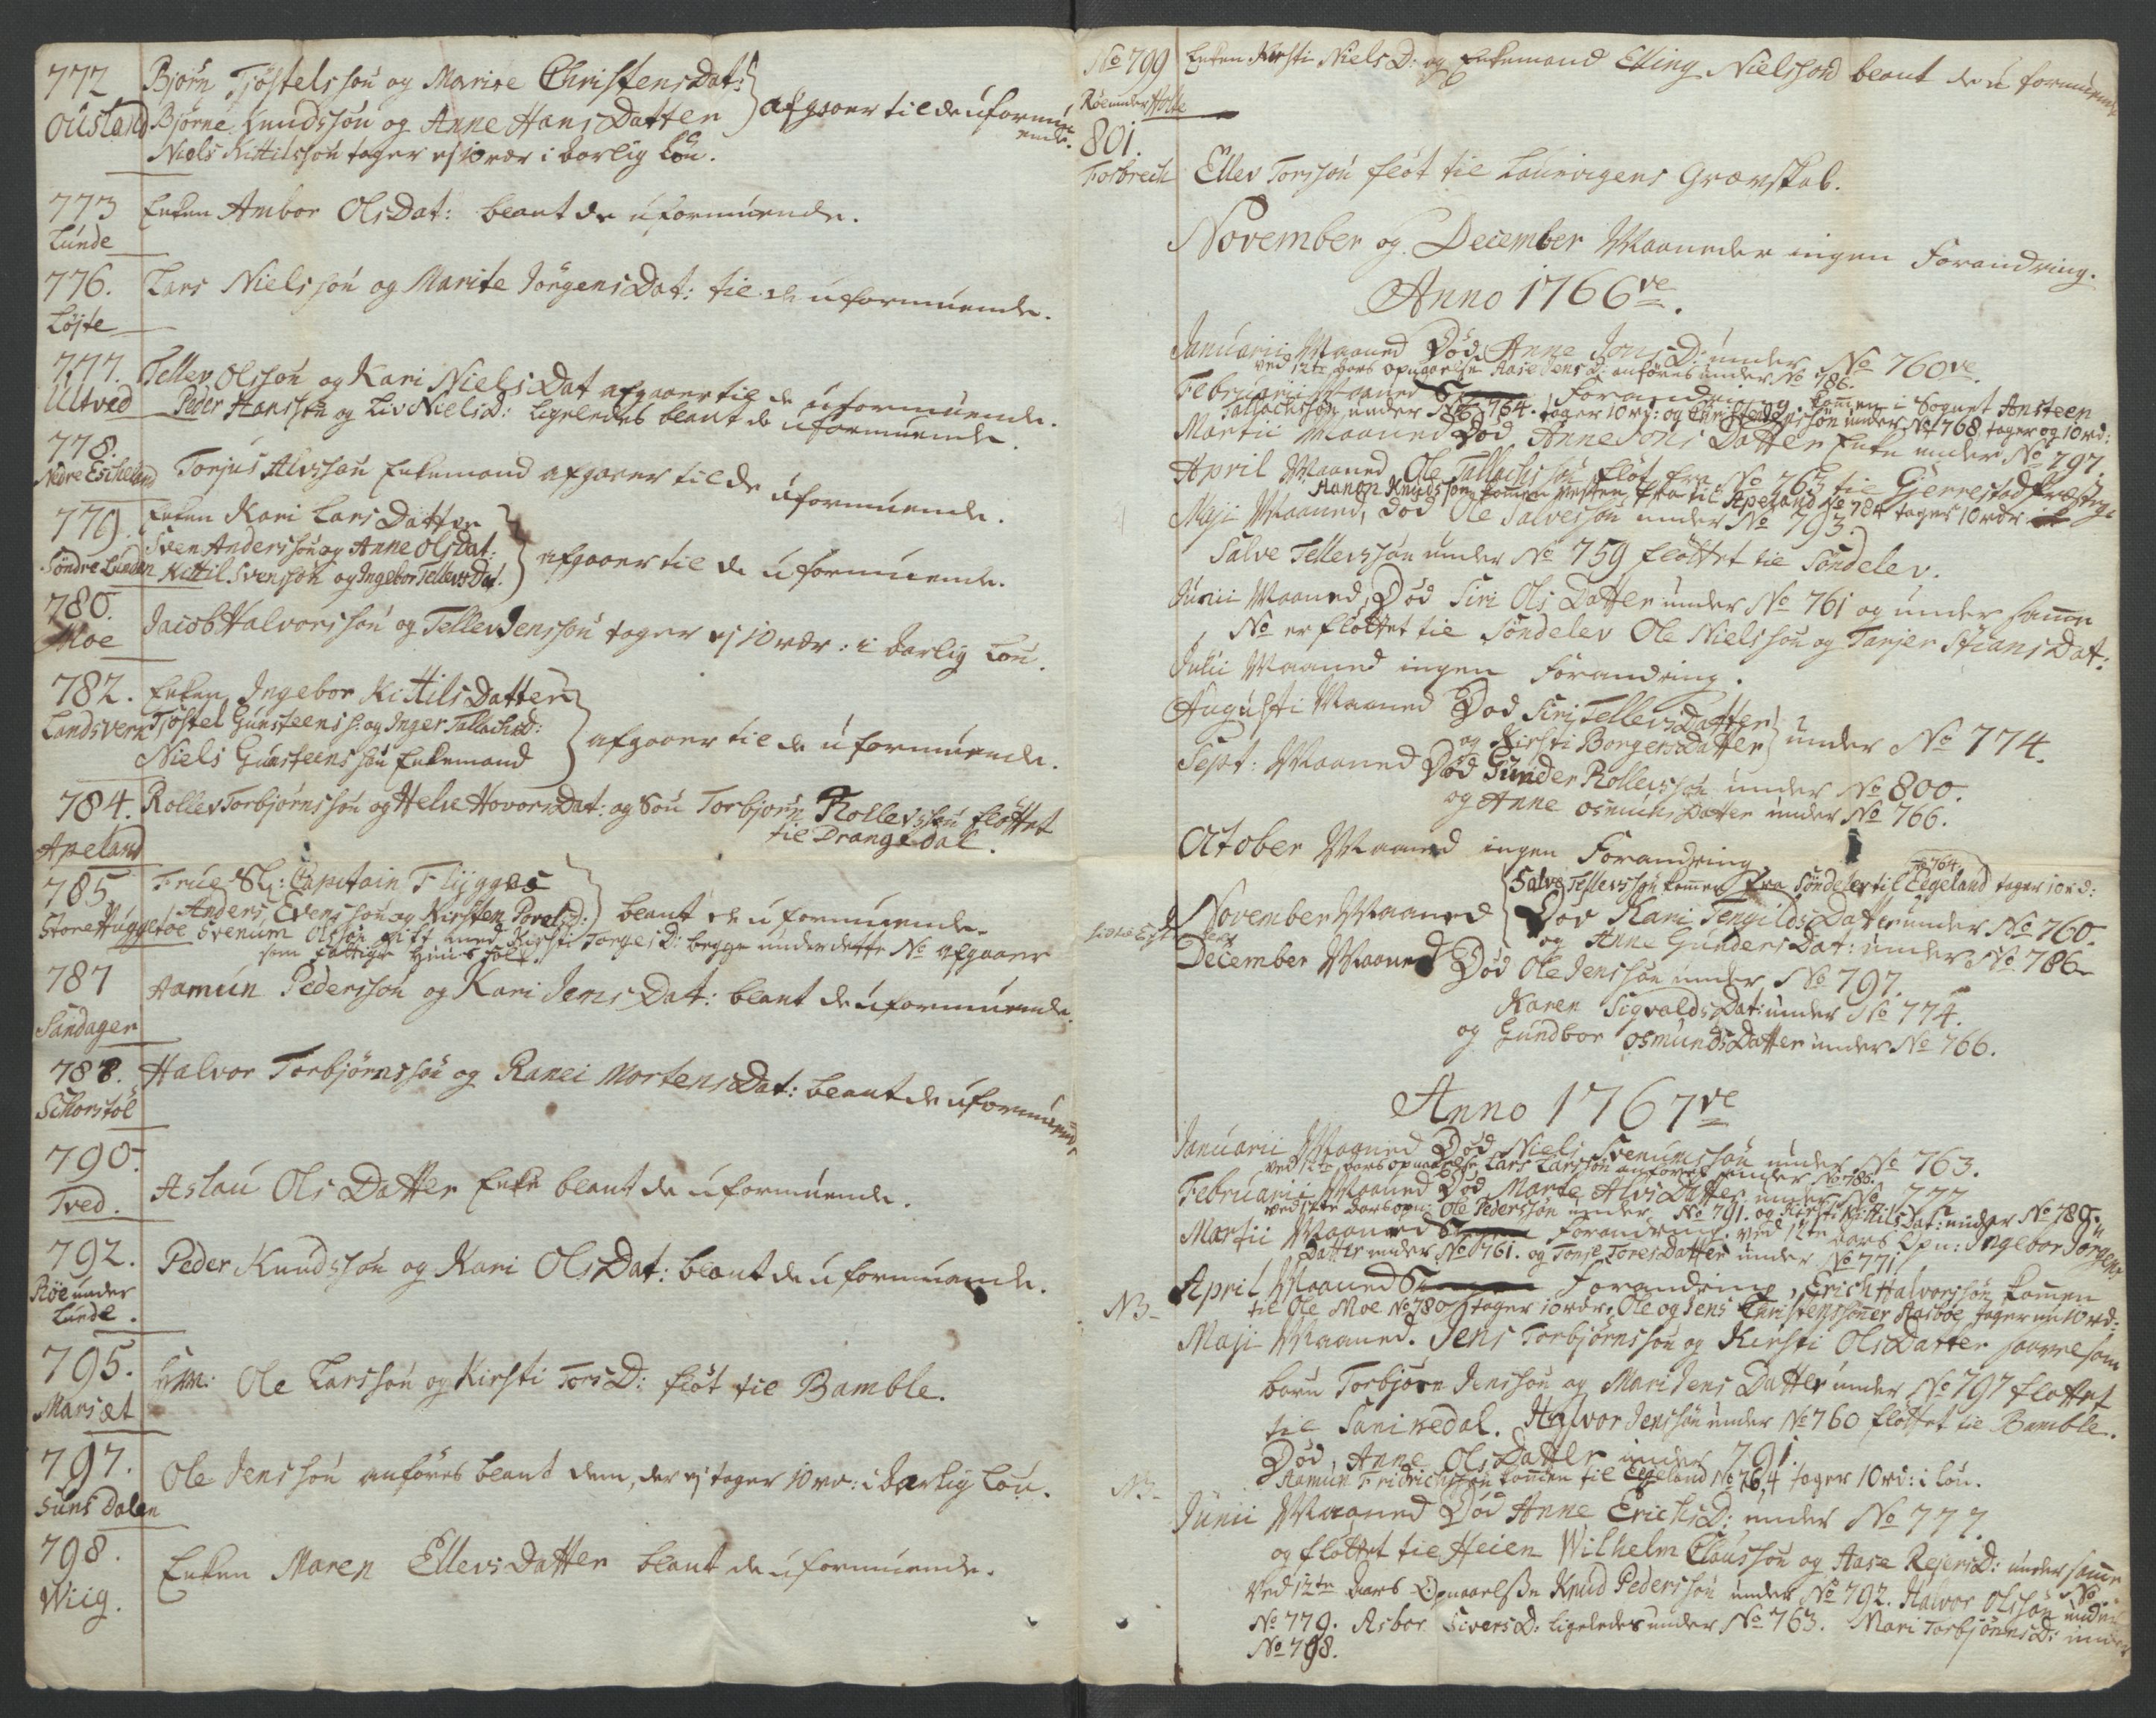 772
Ousland
Bjørn Tjøstelssøn og Marite ChristensDat:
Bjørne Knudssøn og Anne HansDatter
afgaaer til de uformuende.
Niels Kittilssøn tager ej 10 rdr i aarlig Løn.
773
Lunde
Enken Ambor OlsDat: blant de uformuende.
776.
Løjte
Lars Nielssøn og Marite JörgensDat: til de uformuende.
777.
Ultved
Tellev Olssøn og Kari NielsDat afgaaer til de uformuende.
Peder Hanssøn og Liv NielsD: ligeledes blant de uformuende.
778.
Nedre Escheland
Torjus Alvssøn Enkemand afgaaer til de uformuende.
779.
Söndre Lunden
Enken Kari LarsDatter
Sven Anderssøn og Anne OlsDat:
Kittil Svenssøn og Ingebor TellevsDat.
afgaaer til de uformuende.
780.
Moe
Jacob Halvorssøn og Tellev Jenssøn tager ej 10 rdr: i aarlig Løn.
782.
Landsverk
Enken Ingebor KittilsDatter
Tjøstel Gunsteens S: og Inger TallachsD:
Niels Gunsteenssøn Enkemand
afgaaer til de uformuende.
784.
Apeland
Rollev Torbjörnssøn og Helve HovorsDat: og Søn Torbjørn Rollevssøn fløttet
til Drangedal.
785
Store Huggetoe
Frue Sl: Capitain Flygges
Anders Evenssøn og Kirsten PovelsD:
blant de uformuende.
Svenum Olssøn gift med Kirsti TorgesD: begge under dette No afgaaer
som fattige Huus folk.
787
Sandager
Aamun Pederssøn og Kari JensDat: blant de uformuende.
788.
Schorstøl
Halvor Torbjörnssøn og Ranei MortensDat: blant de uformuende
790.
Tved.
Aslau OlsDatter Enke blant de uformuende.
792.
Røe under
Lunde.
Peder Knudssøn og Kari OlsDat: blant de uformuende.
795.
Marsæt
Hm: Ole Larssøn og Kirsti TorsD: fløt til Bamble.
797.
Suns Dalen
Ole Jenssøn anföres blant dem, der ej tager 10 rdr: i aarlig Løn.
798.
Wiig.
Enken Maren EllevsDatter blant de uformuende.
No 799
Røe under Holte
Enken Kirsti NielsD: og Enkemand Elling Nielssøn blant de uformuende
801.
Fosbrech
Ellev Torssøn fløt til Laurvigens Grævskab.
November og December Maaneder ingen Forandring.
Anno 1766ve.
Januarii Maaned Död Anne JonsD: under No 760ve.
ved 12te Aars opnaaelse Aase JensD: anföres under No 786.
Februarii Maaned Forandring. kommen i Sognet Ansteen
Tallachssøn under No 764. tager 10 rd: og under No 768 tager og 10 rd:
Martii Maaned Död Anne JonsDatter Enke under No 797.
April Maaned Ole Tallachssøn fløt fra No 763 til Gjerrestad Præstegi
Aanon Knudssøn kommen fra til Apeland No 784 tager 10 rdr
Maji Maaned, Död Ole Salvessøn under No 793.
Salve Tellevssøn under No 759 fløttet til Söndelev.
Junii Maaned, Död Siri OlsDatter under No 761 og under samme
No er fløttet til Söndelev Ole Nielssøn og Tanjer StiansDat:
Julii Maaned ingen Forandring.
Augusti Maaned Död Siri TellevsDatter
og Kirsti BorgersDatter
under No 774.
Sept: Maaned Död Gunder Rollevssøn under No 800.
og Anne OsmundsDatter under No 766.
October Maaned ingen Forandring.
Salve Tellevssøn kommen fra Söndelev til Eegeland No 764 tager 10 rd:
November Maaned
Död Kari TengildsDatter under No 760.
og Anne GundersDat: under No 786.
December Maaned Död Ole Jenssøn under No 797.
Karen SigvaldsDat: under No 774.
og Gundbor OsmundsDatter under No 766.
Anno 1767ve
Januarii Maaned Död Niels Svenumssøn under No 763.
ved 12te Aars opnaaelse Lars Larssøn anföres under No 785.
Februarii Maaned Död Marte AlvsDatter under No 777
ved 12te Aars opn: Ole Pederssøn under No 791. og Kirsti KittilsDat: under No 780.
Martii Maaned Forandring. ved 12te Aars Opn: Ingebor Jörgens
Datter under No 761. og Tonje ToresDatter under No 771.
April Maaned Forandring, Erich Halvorssøn kommen
NB
til Ole Moe No 780, tager 10 rdr, Ole og Jens Christenssønner Aasboe tager nu 10 rd:
Maji Maaned. Jens Torbjørnssøn og Kirsti OlsDatter saavelsom
børn Torbjørn Jenssøn og Mari JensDatter under No 797 fløttet
til Sanikedal. Halvor Jenssøn under No 760 fløttet til Bamble.
Död, Anne OlsDatter under 791.
NB
Aamun Fridrichssøn kommen til Eegeland No 764 tager 10 rd: i løn.
Junii Maaned Död Anne ErichsD: under No 777.
og fløttet til Heien Wilhelm Claussøn og Aase RejersD: under samme No.
Ved 12te Aars Opnaaelse Knud Pederssøn under No 792. Halvor Olssøn under
No 779. Asbor SiversD: ligeledes under No 763. Mari TorbjörnsD: under
No 798.